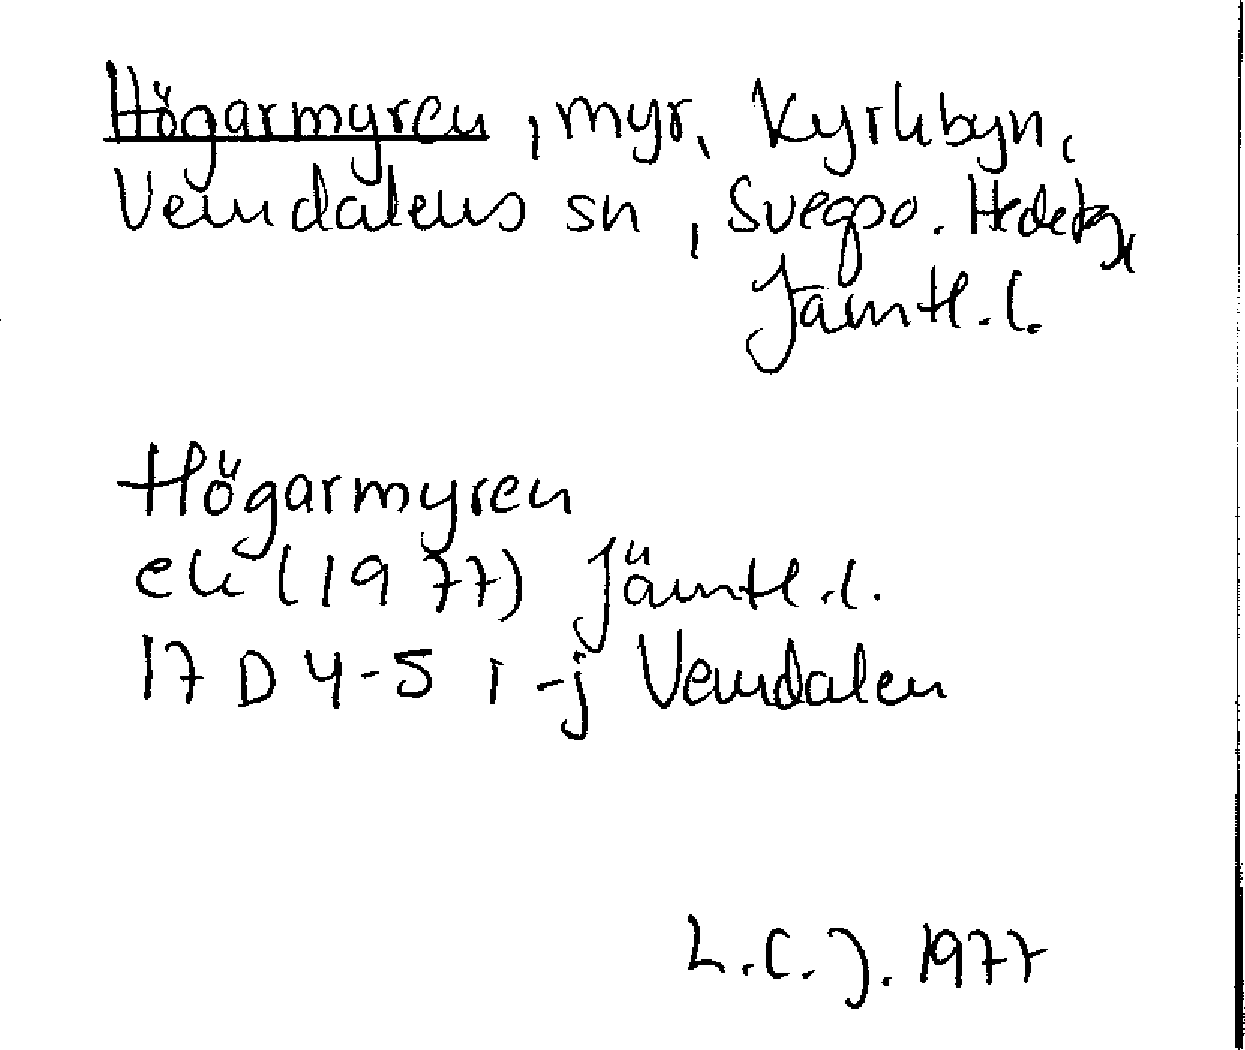 Högarmyren, myr, Kyrkbyn,
Vemdalens sn, Svegpo.
Jämtl. l.
Högarmyren
ek (1977) Jämtl. l.
17 D 4-5 i-j Vemdalen
L.C.J. 1977